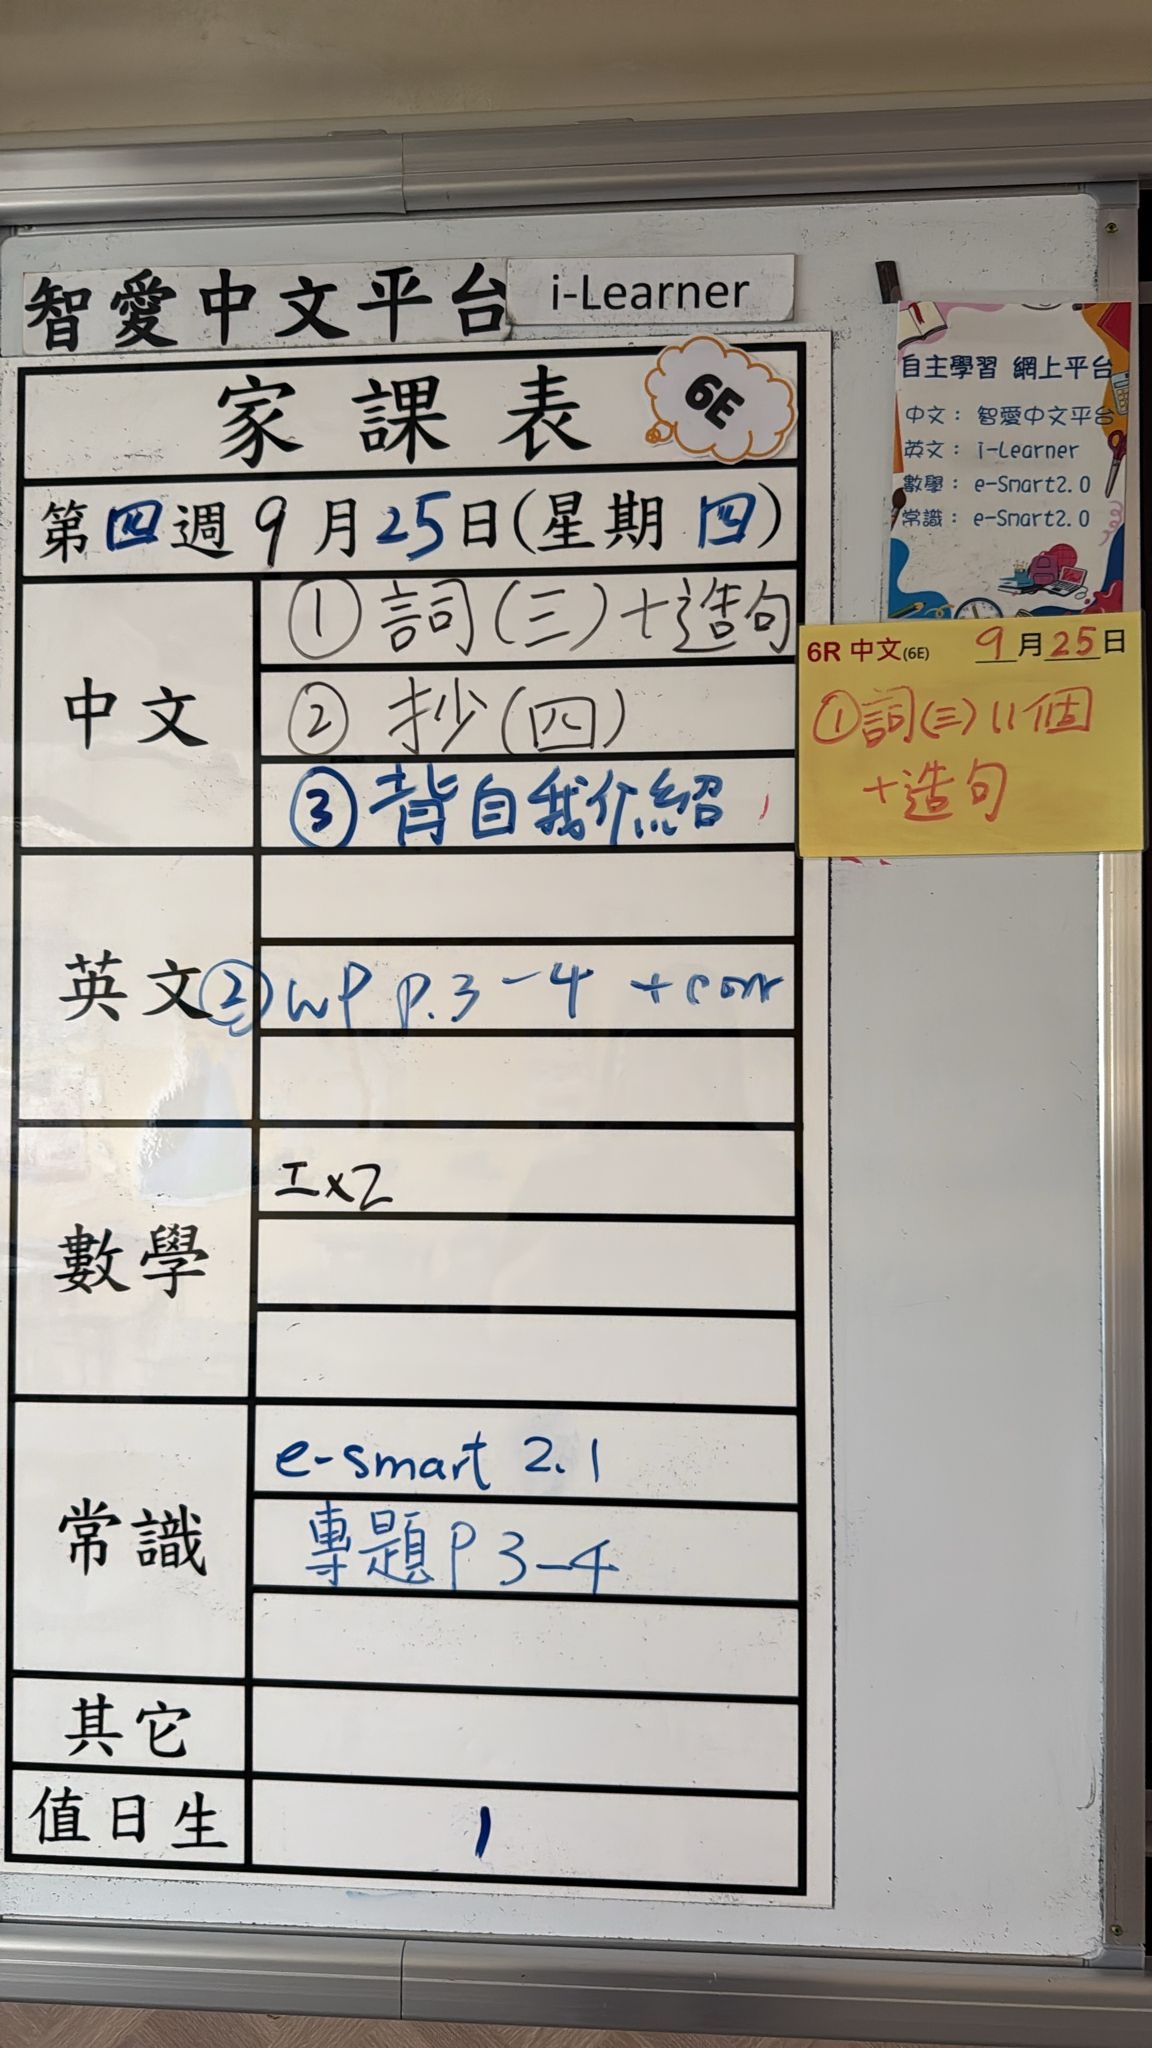 智愛中文平台 i-Learner
家課表 6E
第四週9月25日(星期四)
中文
① 詞(三)+造句
② 抄(四)
③ 背自我介紹
英文
② WP P.3-4 +corr
數學
工x2
常識
e-smart 2.1
專題P3-4
其它
值日生
1
自主學習 網上平台
中文: 智愛中文平台
英文: i-Learner
數學: e-Smart2.0
常識: e-Smart2.0
6R 中文(6E) 9月25日
①詞(三)11個
+造句